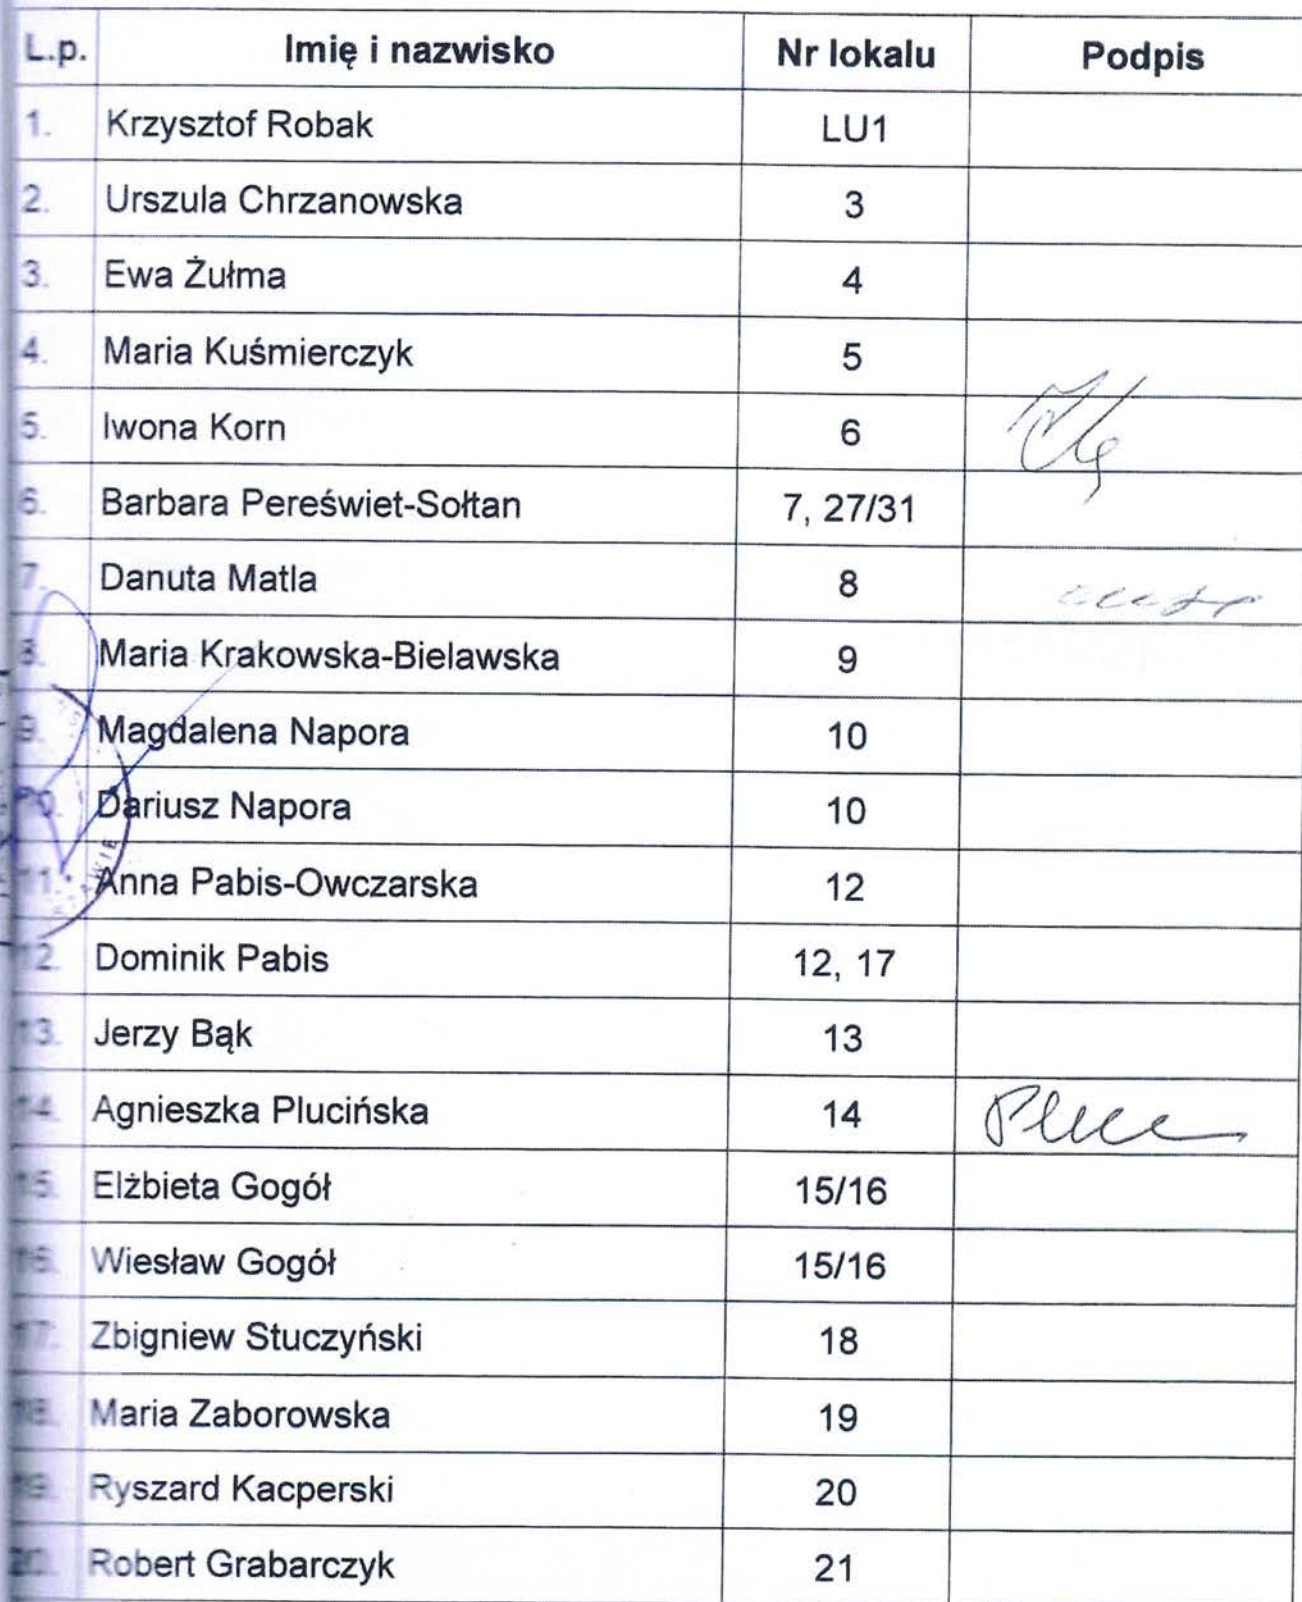 L.p. Imię i nazwisko Nr lokalu Podpis
1. Krzysztof Robak LU1
2. Urszula Chrzanowska 3
3. Ewa Żułma 4
4. Maria Kuśmierczyk 5
5. Iwona Korn 6
6. Barbara Pereświet-Sołtan 7, 27/31
7. Danuta Matla 8
8. Maria Krakowska-Bielawska 9
9. Magdalena Napora 10
10. Dariusz Napora 10
11. Anna Pabis-Owczarska 12
12. Dominik Pabis 12, 17
13. Jerzy Bąk 13
14. Agnieszka Plucińska 14
15. Elżbieta Gogół 15/16
16. Wiesław Gogół 15/16
17. Zbigniew Stuczyński 18
18. Maria Zaborowska 19
19. Ryszard Kacperski 20
20. Robert Grabarczyk 21